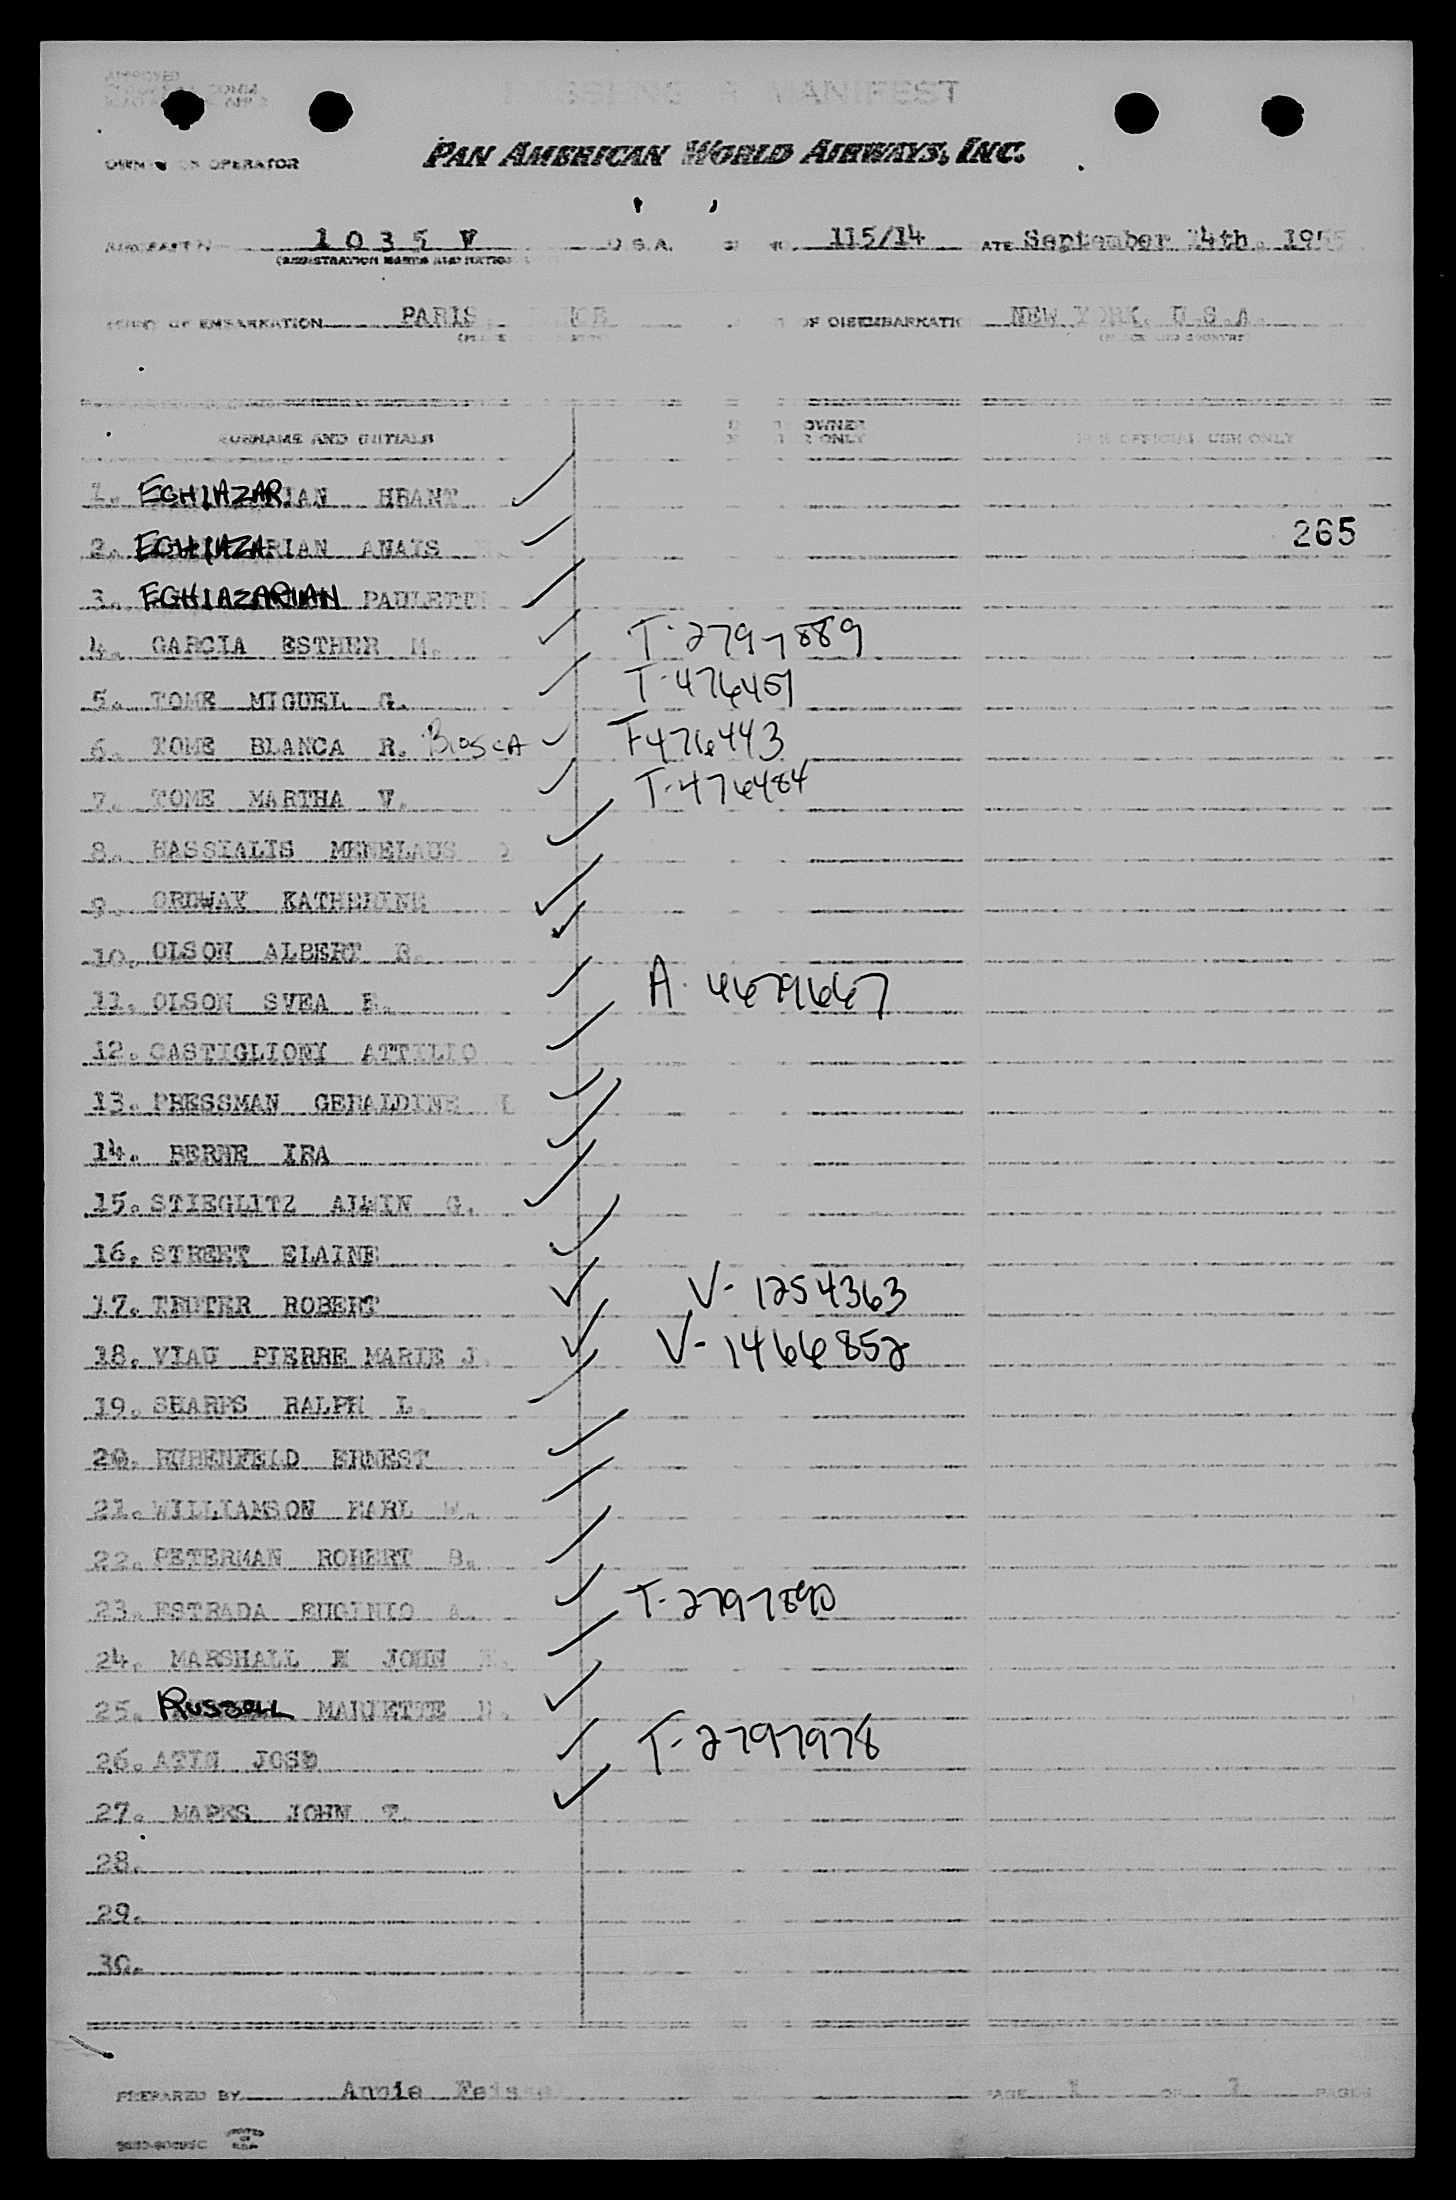 APPROVED
PASSENGER MANIFEST
OWNER OR OPERATOR PAN AMERICAN WORLD AIRWAYS, INC.
AIRCRAFT 1 0 3 5 V U.S.A. 115/14 DATE September 14th. 1955
(REGISTRATION MARKS AND NATION
POINT OF EMBARKATION PARIS OF DISEMBARKATION NEW YORK, U.S.A.
(PLACE AND COUNTRY)
SURNAME AND INITIALS OWNER ONLY FOR OFFICIAL USE ONLY
1. EGHIAZARIAN HRANT
2. EGHIAZARIAN ANAIS 265
3. EGHIAZARIAN PAULETT
4. GARCIA ESTHER M. T-2797889
5. TOME MIGUEL G. T-476451
6. TOME BLANCA R. BioscA T-476443
7. TOME MARTHA V. T-476484
8. HASSIALIS MENELAUS D
9. ORDWAY KATHERINE
10. OLSON ALBERT E.
11. OLSON SVEA E. A-4679667
12. CASTIGLIONY ATTILIO
13. PRESSMAN GERALDINE
14. BERNE IRA
15. STIEGLITZ ALWIN G.
16. STREET ELAINE
17. TEUTER ROBERT V-1254363
18. VIAU PIERRE MARIE J. V-1466852
19. SHARPS RALPH L.
20. RUBENFELD ERNEST
21. WILLIAMSON EARL W.
22. PETERMAN ROBERT B.
23. ESTRADA EUGINIO A. T-2797890
24. MARSHALL N JOHN
25. RUSSELL MARIETTE
26. ATIN JOSE T-2797978
27. MARKS JOHN T.
28.
29.
30.
PREPARED BY Annie PAGE 1 OF 1 PAGES